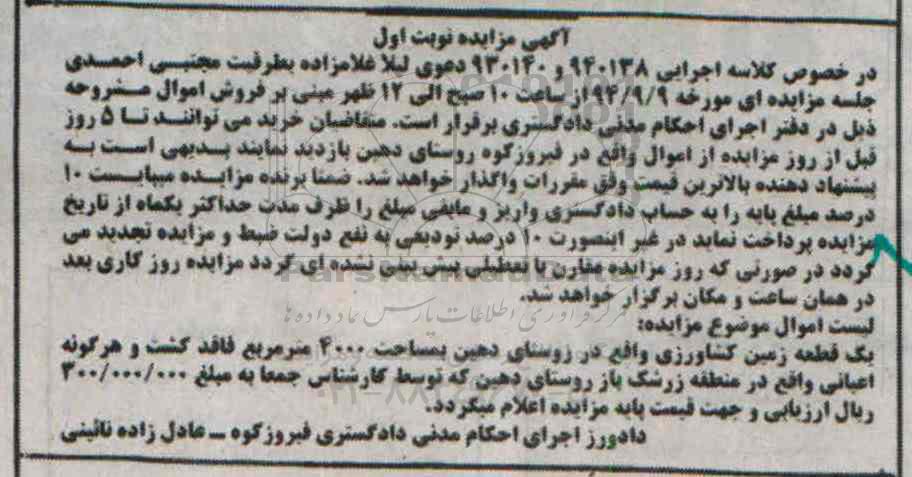 آگهی مزایده نوبت اول
در خصوص کلاسه اجرایی ۹۴۰۱۳۸ و ۹۳۰۱۴۰ دعوی لیلا غلامزاده بطرفیت مجتبی احمدی
جلسه مزایده ای مورخه ۹۴/۹/۹ از ساعت ۱۰ صبح الی ۱۲ ظهر مبنی بر فروش اموال مشروحه
ذیل در دفتر اجرای احکام مدنی دادگستری برقرار است. متقاضیان خرید می توانند تا ۵ روز
قبل از روز مزایده از اموال واقع در فیروزکوه روستای دهین بازدید نمایند بدیهی است به
پیشنهاد دهنده بالاترین قیمت وفق مقررات واگذار خواهد شد. ضمنا برنده مزایده میبایست ۱۰
درصد مبلغ پایه را به حساب دادگستری واریز و مابقی مبلغ را ظرف مدت حداکثر یکماه از تاریخ
مزایده پرداخت نماید در غیر اینصورت ۱۰ درصد تودیعی به نفع دولت ضبط و مزایده تجدید می
گردد در صورتی که روز مزایده مقارن با تعطیلی پیش بینی نشده ای گردد مزایده روز کاری بعد
در همان ساعت و مکان برگزار خواهد شد.
لیست اموال موضوع مزایده:
یک قطعه زمین کشاورزی واقع در روستای دهین بمساحت ۴۰۰۰ مترمربع فاقد کشت و هرگونه
اعیانی واقع در منطقه زرشک باز روستای دهین که توسط کارشناس جمعا به مبلغ ۳۰۰/۰۰۰/۰۰۰
ریال ارزیابی و جهت قیمت پایه مزایده اعلام میگردد.
دادورز اجرای احکام مدنی دادگستری فیروزکوه ــ عادل زاده نائینی